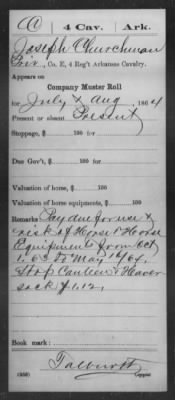 (A | 4 Cav. | Ark.
Joseph Churchman
Priv., Co. E, 4 Reg't Arkansas Cavalry.
Appears on
Company Muster Roll
for July & Aug, 1864
Present or absent Present
Stoppage, $ 100
Due Gov't, $ 100
Valuation of horse, $ 100
Valuation of horse equipments, $ 100
Remarks Pay due for use &
risk of Horse & Horse
Equipments from Oct
1. 63 to May 1st/64.
Stop Canteen & Haver
sack $1.12.
Book mark:
(358) Talburtt
Copyist